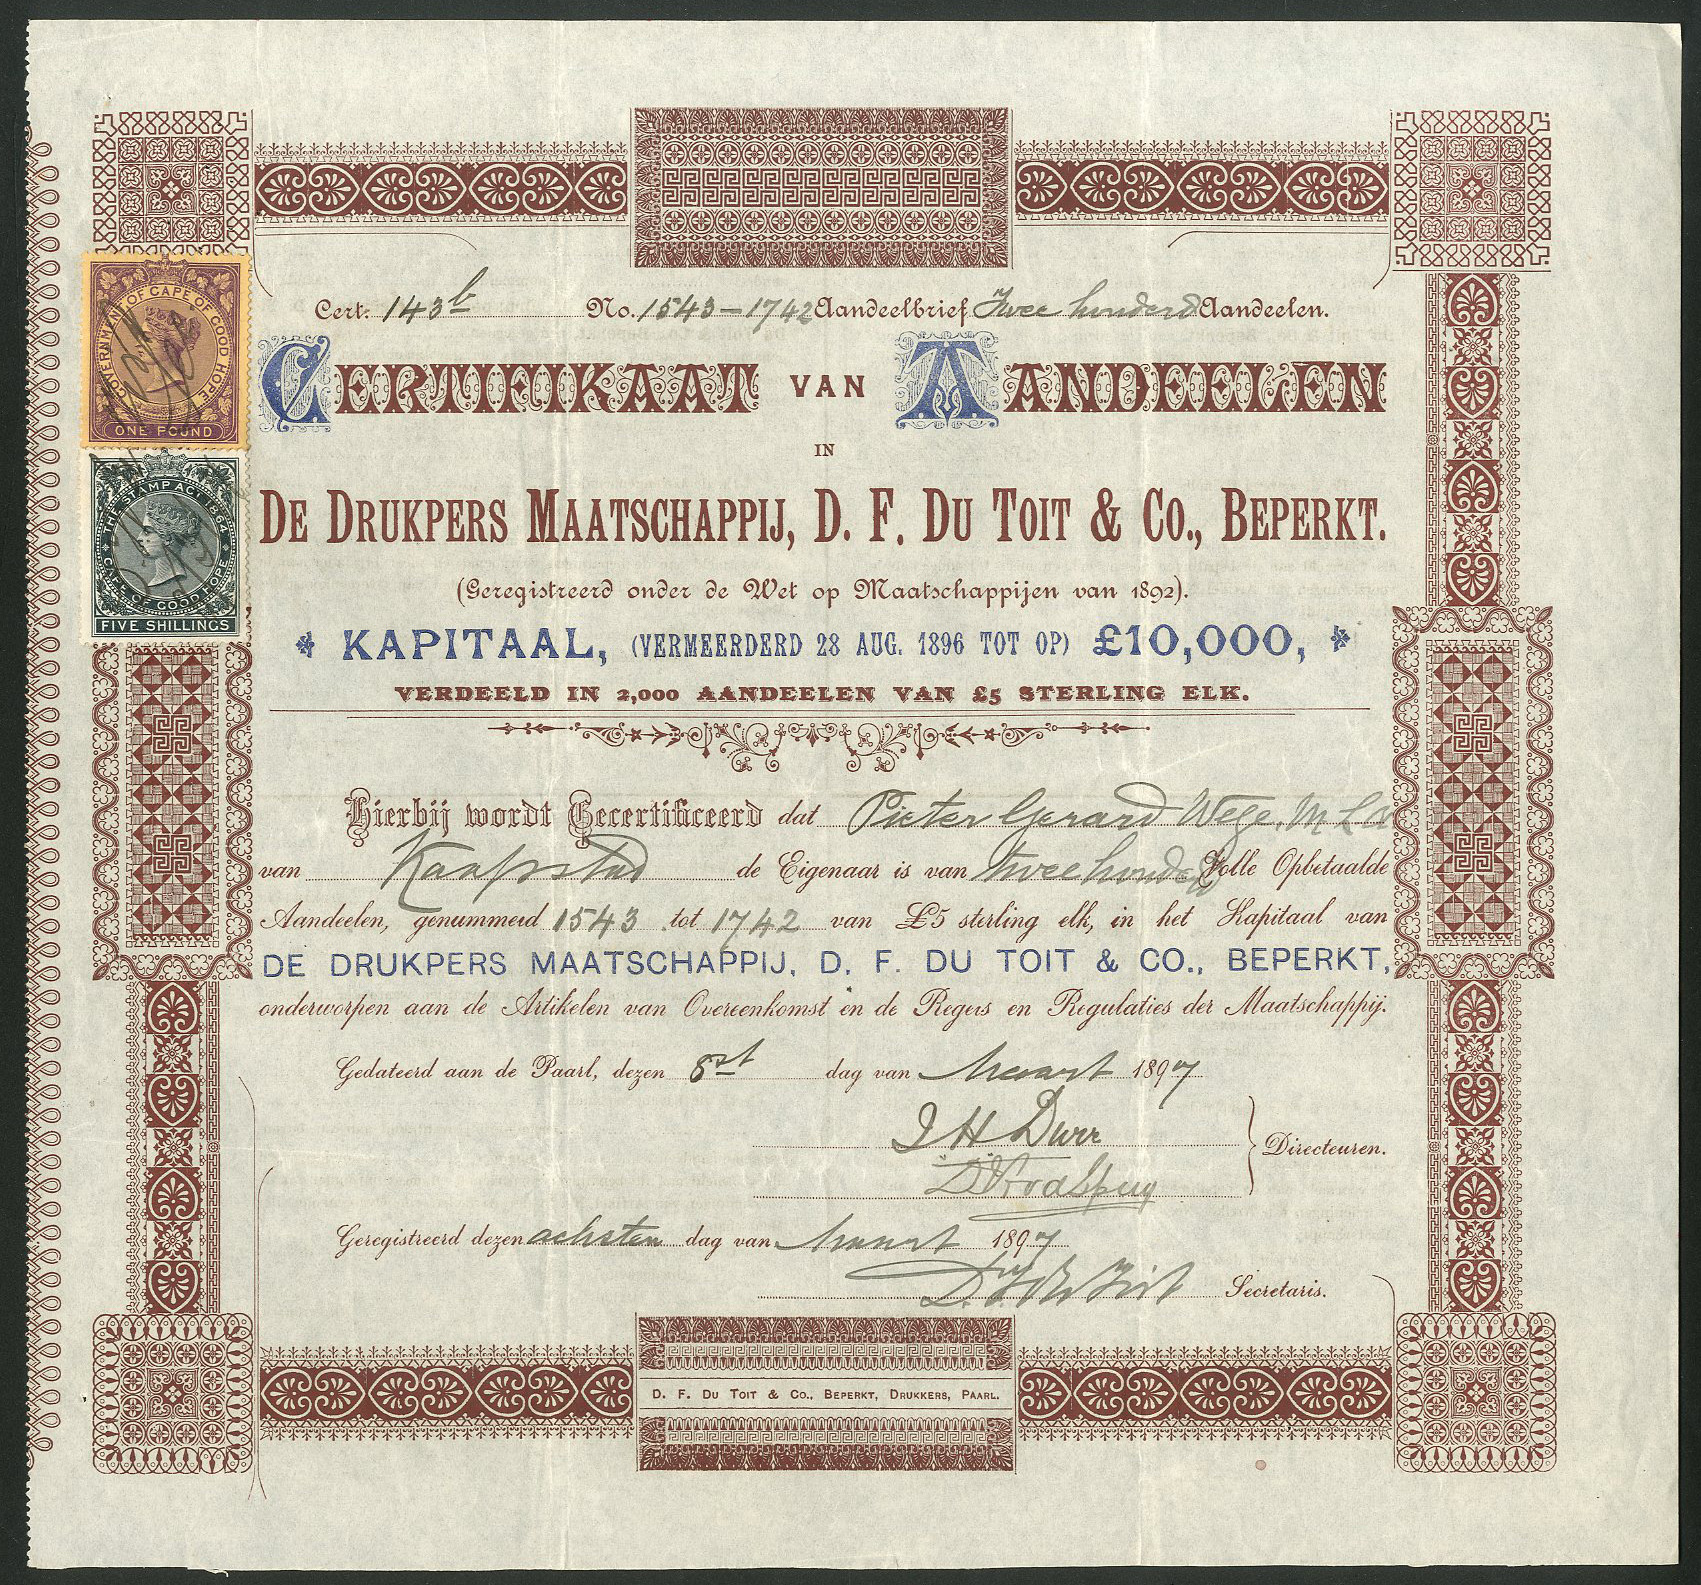 Cert. 143b No. 1543–1742 Aandeelbrief Twee honderd Aandeelen.
CERTIFIKAAT VAN AANDEELEN
IN
DE DRUKPERS MAATSCHAPPIJ, D. F. DU TOIT & CO., BEPERKT.
(Geregistreerd onder de Wet op Maatschappijen van 1892).
KAPITAAL, (VERMEERDERD 28 AUG. 1896 TOT OP) £10,000,
VERDEELD IN 2,000 AANDEELEN VAN £5 STERLING ELK.
Hierbij wordt Gecertificeerd dat Pieter Gerard Wege. M L A
van Kaapstad de Eigenaar is van twee honderd Volle Opbetaalde
Aandeelen, genummerd 1543 tot 1742 van £5 sterling elk, in het Kapitaal van
DE DRUKPERS MAATSCHAPPIJ, D. F. DU TOIT & CO., BEPERKT,
onderworpen aan de Artikelen van Overeenkomst en de Regels en Regulaties der Maatschappij.
Gedateerd aan de Paarl, dezen 8st dag van Maart 1897
J H Durr
Directeuren.
Geregistreerd dezen achsten dag van Maart 1897
D. F. du Toit Secretaris.
D. F. DU TOIT & CO., BEPERKT, DRUKKERS, PAARL.
GOVERNMENT OF CAPE OF GOOD HOPE
ONE POUND
THE STAMP ACT 1864
CAPE OF GOOD HOPE
FIVE SHILLINGS